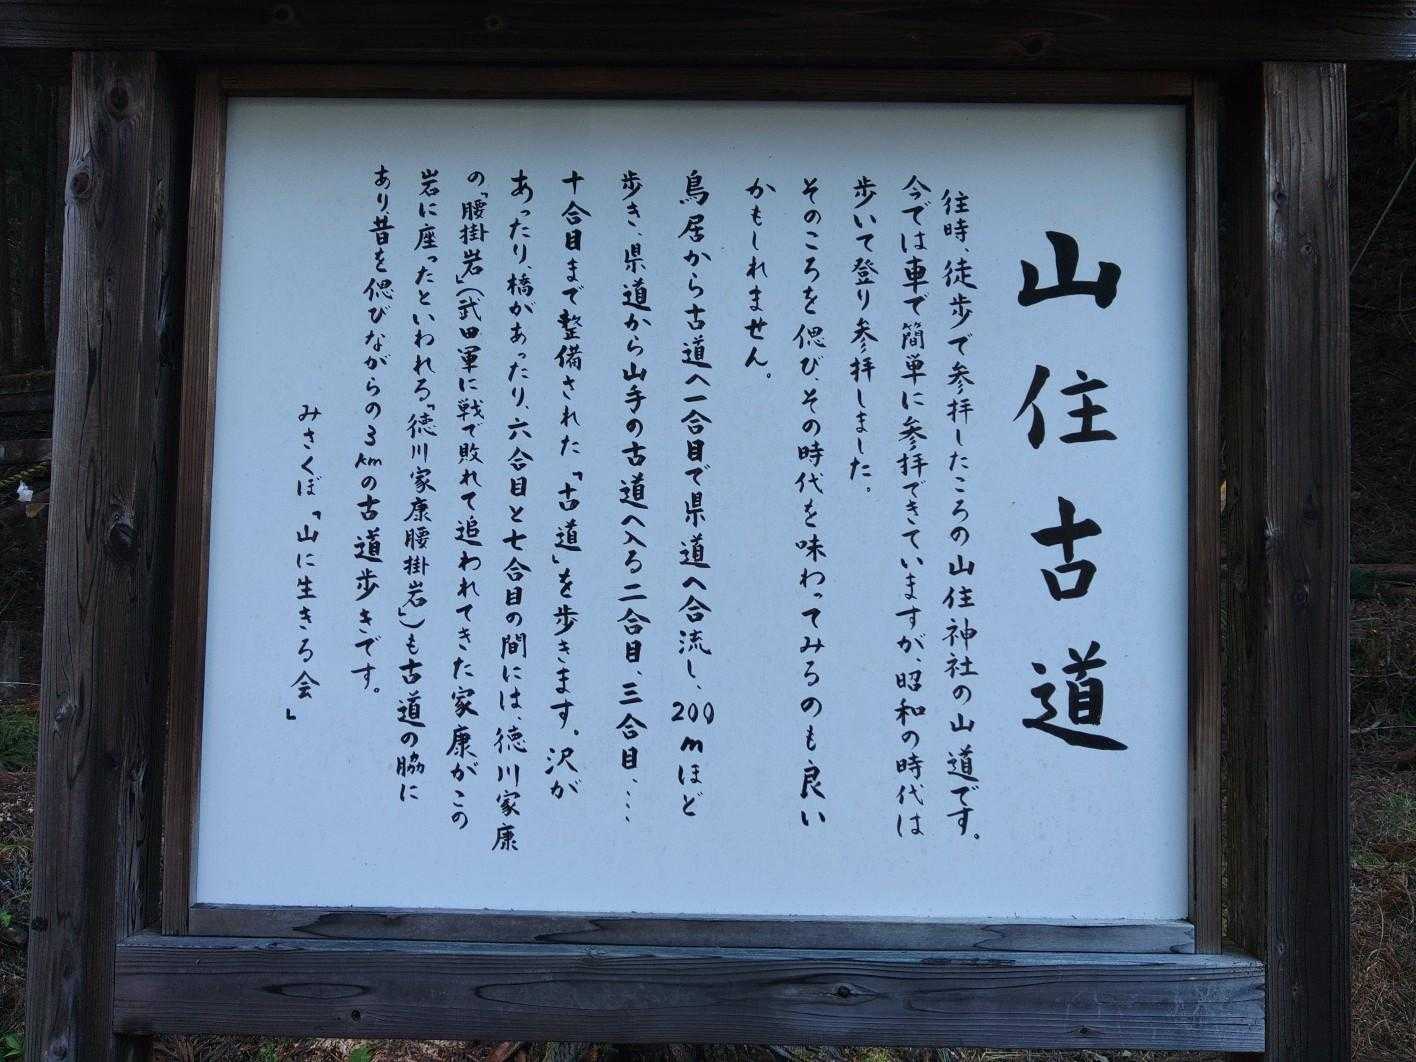 山住古道
往時、徒歩で参拝したころの山住神社の山道です。
今では車で簡単に参拝できていますが、昭和の時代は
歩いて登り参拝しました。
そのころを偲び、その時代を味わってみるのも良い
かもしれません。
鳥居から古道へ一合目で県道へ合流し、200mほど
歩き、県道から山手の古道へ入る二合目、三合目、…
十合目まで整備された「古道」を歩きます。沢が
あったり、橋があったり、六合目と七合目の間には、徳川家康
の「腰掛岩」(武田軍に戦で敗れて追われてきた家康がこの
岩に座ったといわれる「徳川家康腰掛岩」)も古道の脇に
あり、昔を偲びながらの3kmの古道歩きです。
みさくぼ「山に生きる会」